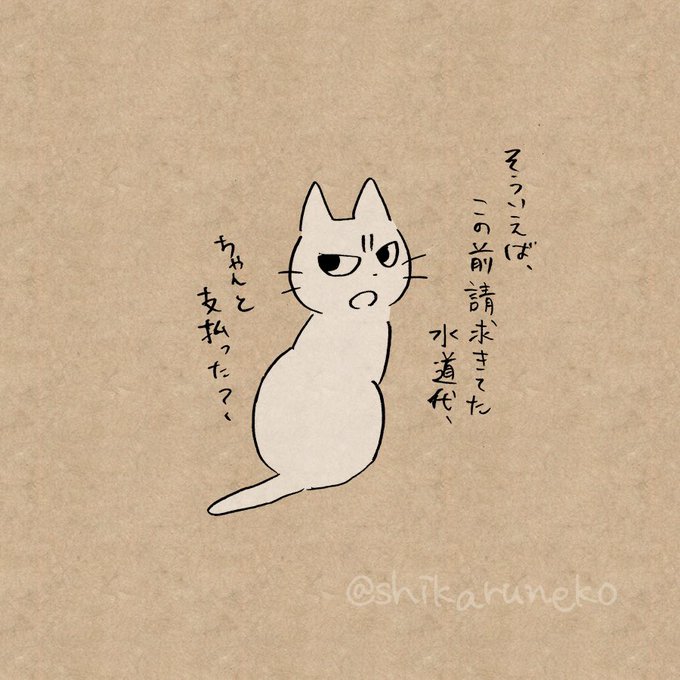 そういえば、
この前請求きてた
水道代、
ちゃんと
支払った?、
@shikaruneko